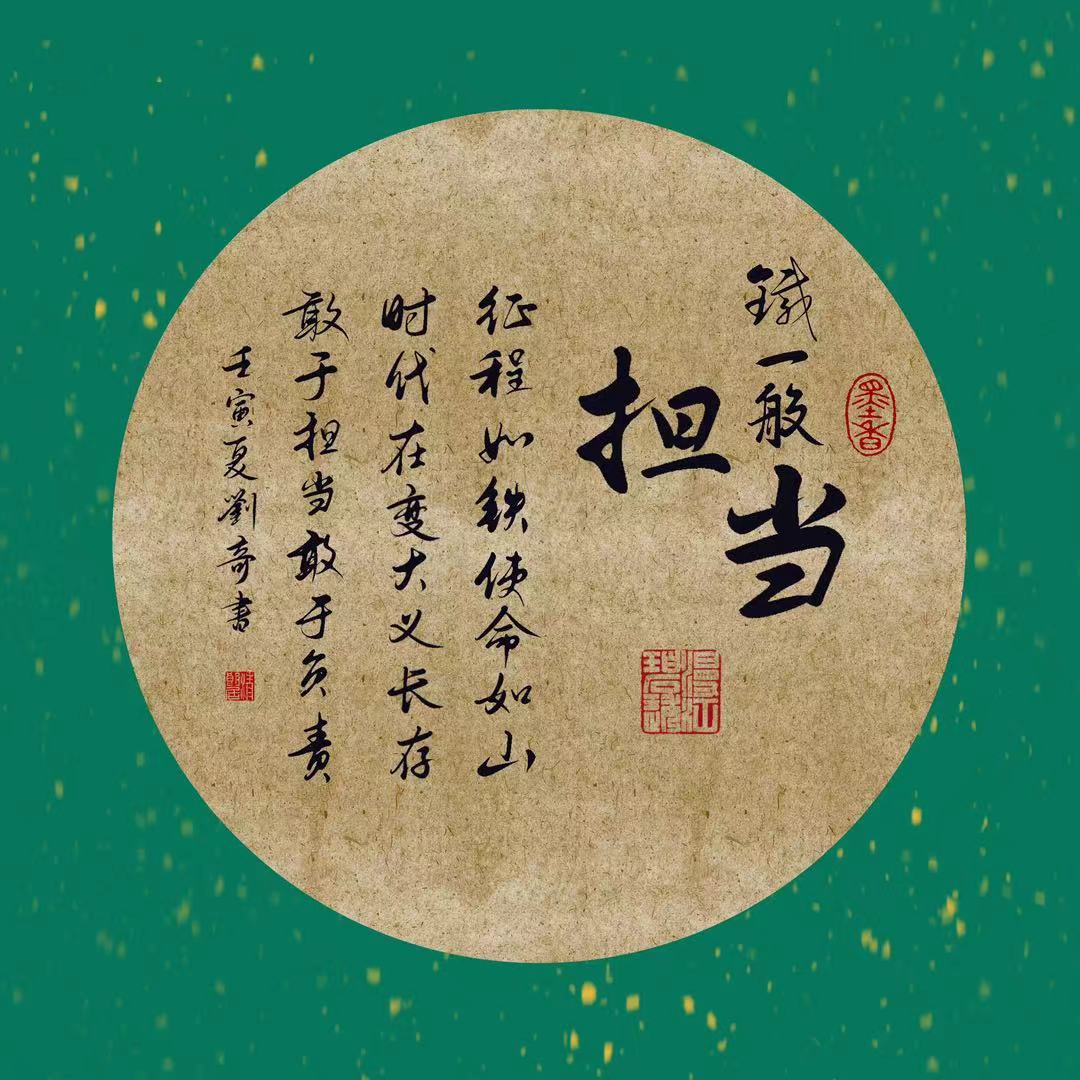 墨香
鐵一般
担当
征程如鉄使命如山
时代在变大义长存
敢于担当敢于负责
壬寅夏劉奇书